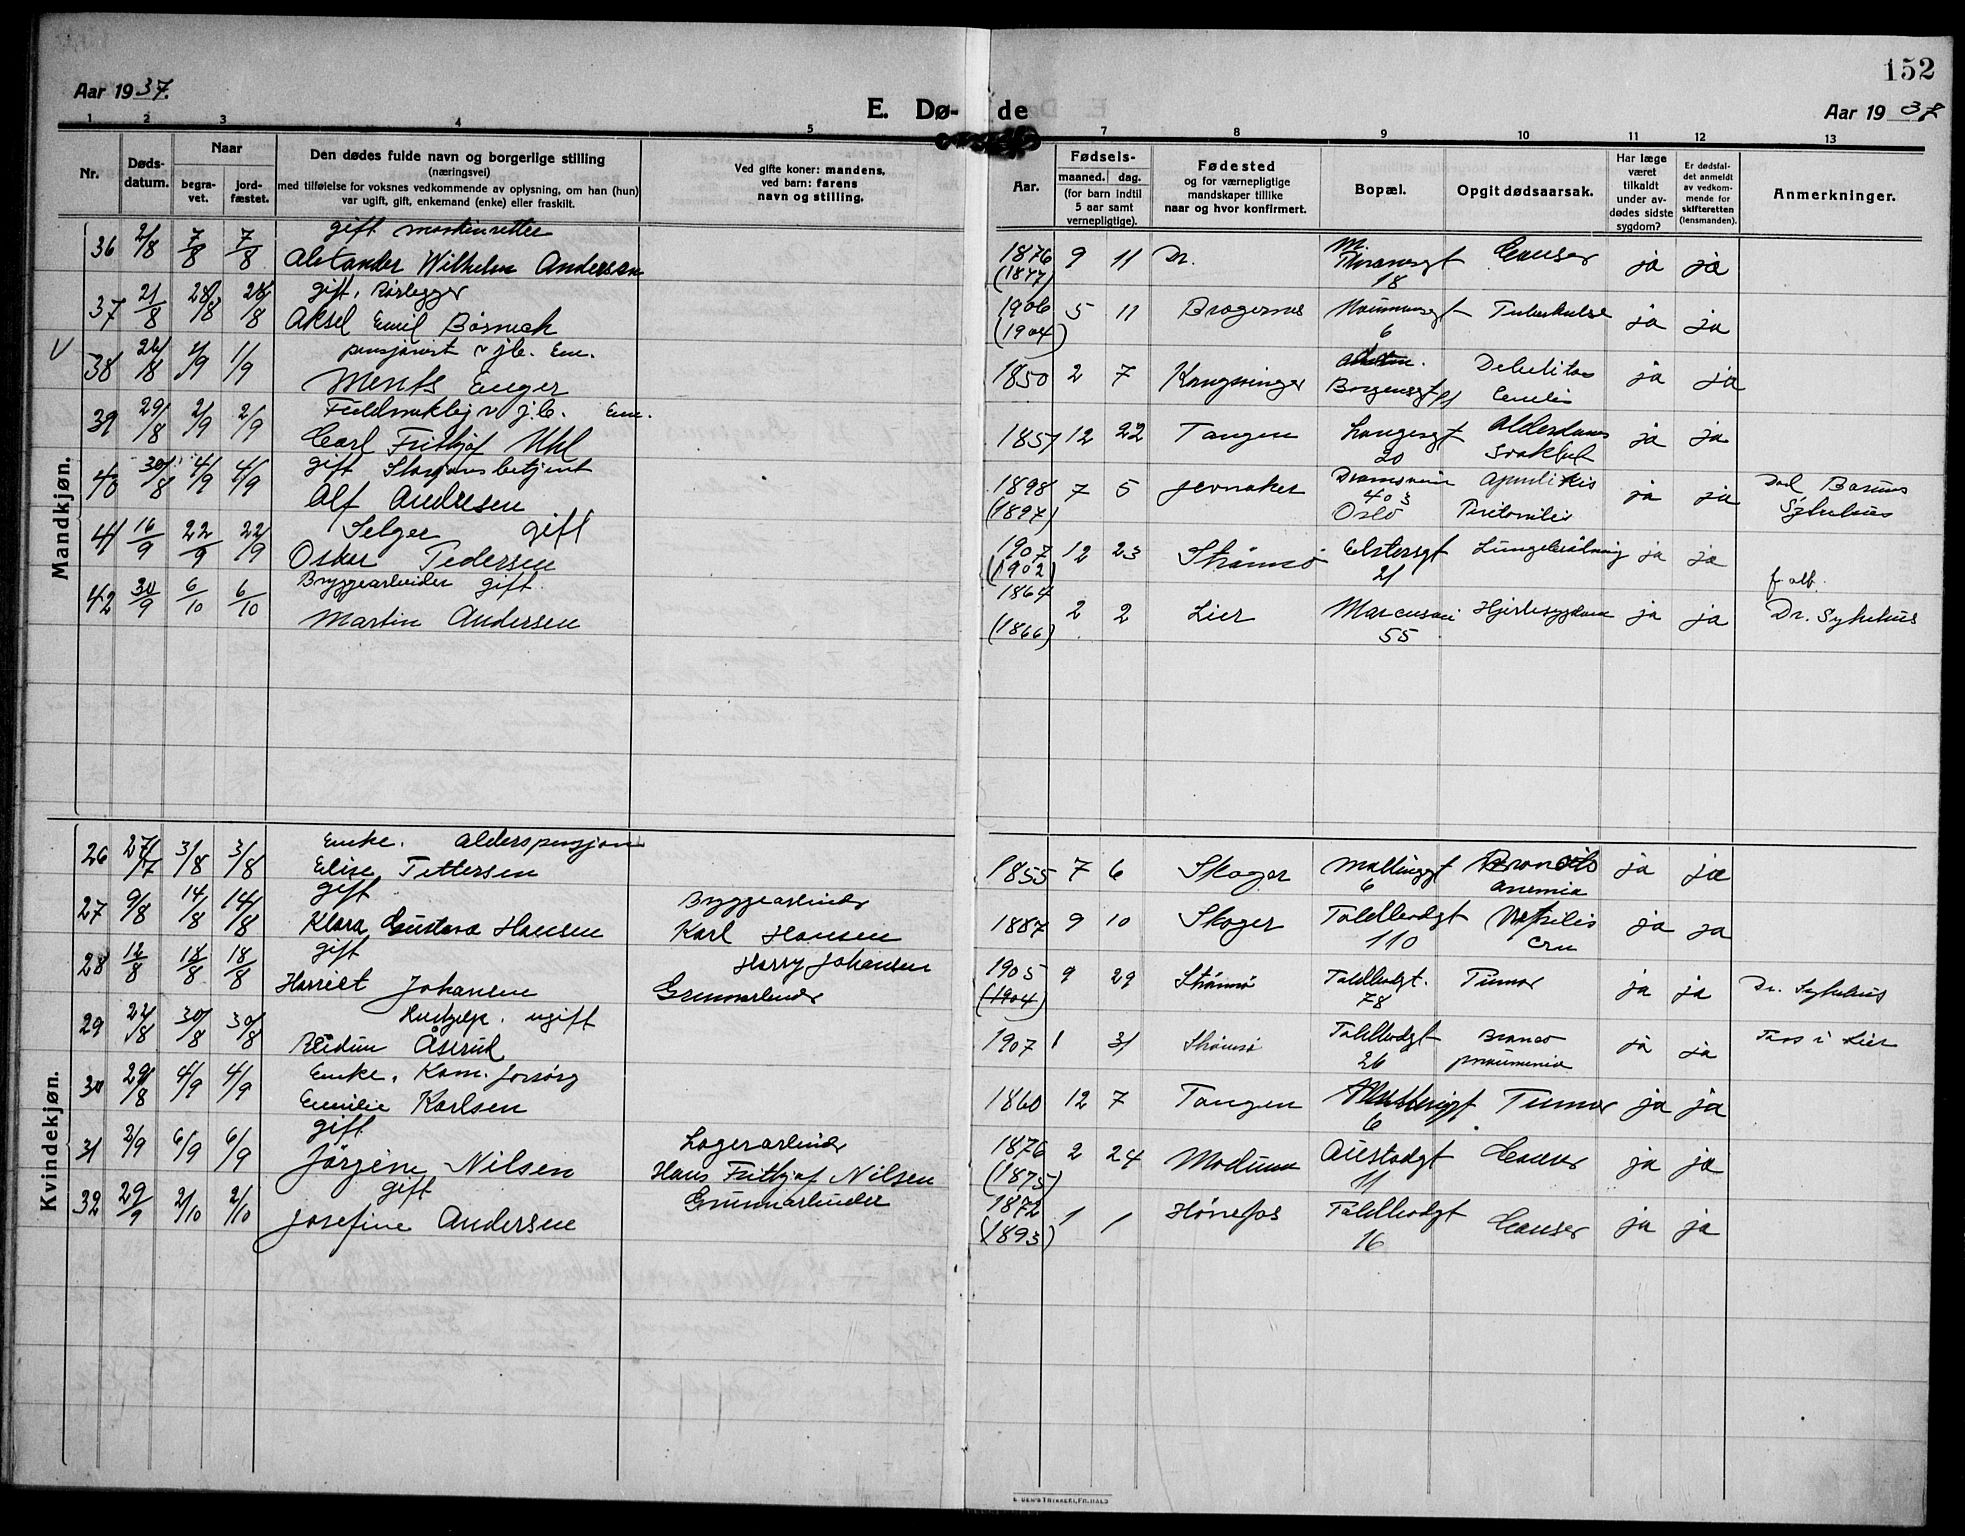 152
Aar 1937.
E. Dø- de
Aar 1937
1 2 3 4 5 7 8 9 10 11 12 13
Nr. Døds-datum. Naar begra-vet. jord-fæstet. Den dødes fulde navn og borgerlige stilling (næringsvei) med tilføielse for voksnes vedkommende av oplysning, om han (hun) var ugift, gift, enkemand (enke) eller fraskilt. Ved gifte koner: mandens, ved barn: farens navn og stilling. Aar. Fødsels- maaned. dag. (for barn indtil 5 aar samt vernepligtige). Fødested og for værnepligtige mandskaper tillike naar og hvor konfirmert. Bopæl. Opgit dødsaarsak. Har læge været tilkaldt under av-dødes sidste sygdom? Er dødsfal-det anmeldt av vedkom-mende for skifteretten (lensmanden). Anmerkninger.
Mandkjøn.
gift
36 2/8 7/8 7/8 Alexander Wilhelm Andersen 1876 (1877) 9 11 Dr. 18 Canser ja ja
gift, Rørlegger
37 21/8 28/8 28/8 Aksel Emil 1906 (1904) 5 11 Bragernes 6 Tuberkulose ja ja
V
pensjonist v jb. Em.
38 26/8 1/9 1/9 Enger 1850 2 7 Kongsvinger Borgensgt Debilitas ja ja
Em.
39 29/8 2/9 2/9 Carl Frithjof Uhl 1857 12 22 Tangen Langesgt 20 Alderdoms Svakhet ja ja
gift Stasjonsbetjent
40 30/8 4/9 4/9 Alf Andresen 1898 (1897) 7 5 Jevnaker 403 Oslo Peritonitis ja ja Død Bærums Sykehus
Selger gift
41 16/9 22/9 22/9 Oskar Pedersen 1907 (1902) 12 23 Strømsø 21 Lungebetændelse ja ja
Bryggearbeider gift
42 30/9 6/10 6/10 Martin Andersen 1864 (1866) 2 2 Lier 55 Hjertesygdom ja ja Dr. Sykehus
Kvindekjøn.
Enke. Alderspensjon
26 27/7 3/8 3/8 Elise Pettersen 1855 7 6 Skoger 6 anemia ja ja
gift Bryggearbeider
27 9/8 14/8 14/8 Klara Gustava Hansen Karl Hansen 1887 9 10 Skoger Toldbodgt 110 ja ja
gift Harry Johansen
28 12/8 18/8 18/8 Harriet Johansen Grunnarbeider 1905 (1904) 9 29 Strømsø Toldbodgt. 78 Tumor ja ja Dr. Sykehus
Hushjelp. ugift
29 24/8 30/8 30/8 Reidun Åserud 1907 1 31 Strømsø Toldbodgt 26 Bronco pneumonia ja ja i Lier
Enke, Kom. forsørg
30 29/8 4/9 4/9 Emilie Karlsen 1860 12 7 Tangen 6 Tumor ja ja
gift Lagerarbeider
31 2/9 6/9 6/9 Jørgine Nilsen Hans Frithjof Nilsen 1876 (1875) 2 24 Modum Austadgt 11 Canser ja ja
gift Grunnarbeider
32 29/9 2/10 2/10 Josefine Andersen 1872 (1893) 1 1 Hønefos Toldbodgt 16 Canser ja ja